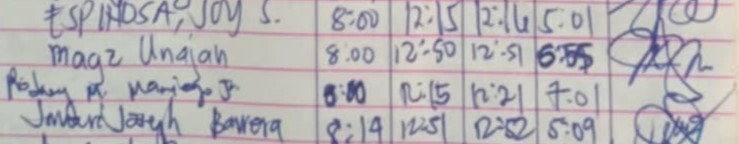 ESPINOSA, JOY S. 8:00 12:15 12:16 5:01
Magz Ungjah 8:00 12:50 12:51 5:55
Rodney M. Jr 8:00 12:15 12:21 7:01
Joseph Barrera 8:14 12:51 12:52 5:09